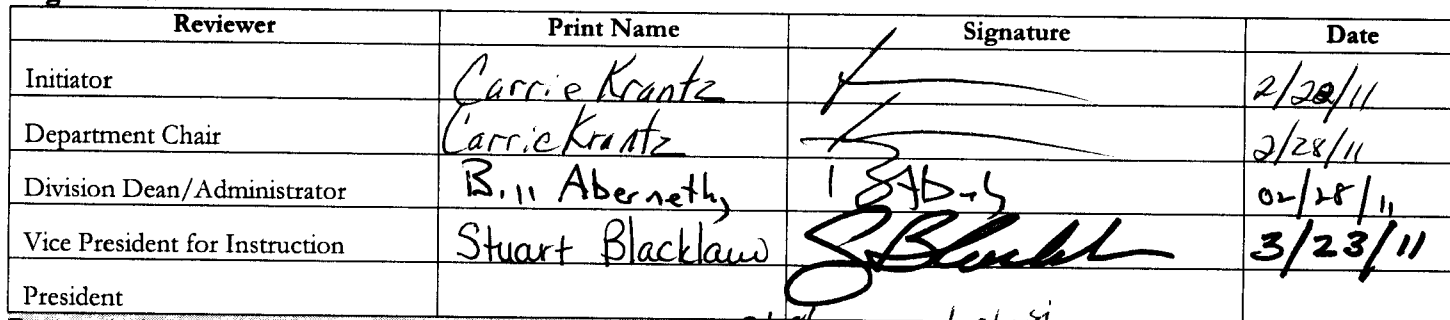 Reviewer Print Name Signature Date
Initiator Carrie Krantz 2/28/11
Department Chair Carrie Krantz 2/28/11
Division Dean/Administrator Bill Abernethy 02/28/11
Vice President for Instruction Stuart Blacklaw S Blacklaw 3/23/11
President